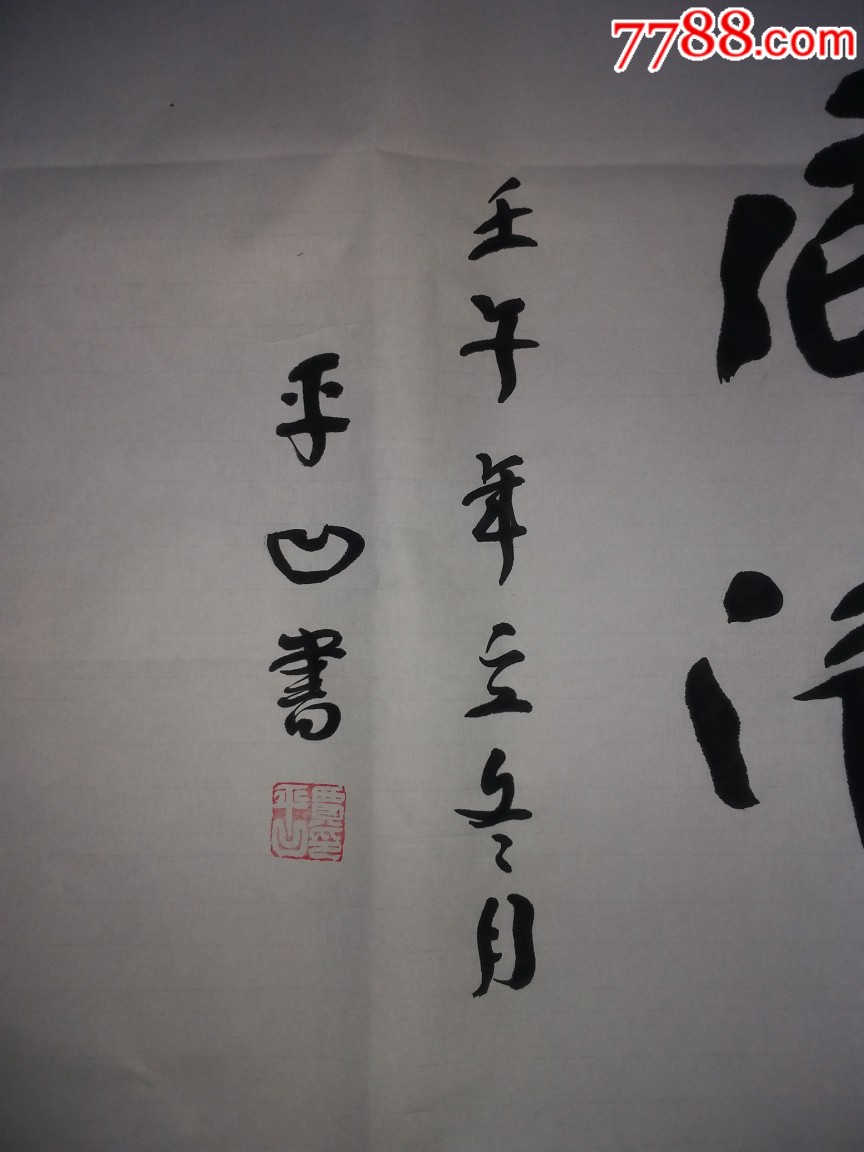 7788.com
壬午年立冬月
平凹書